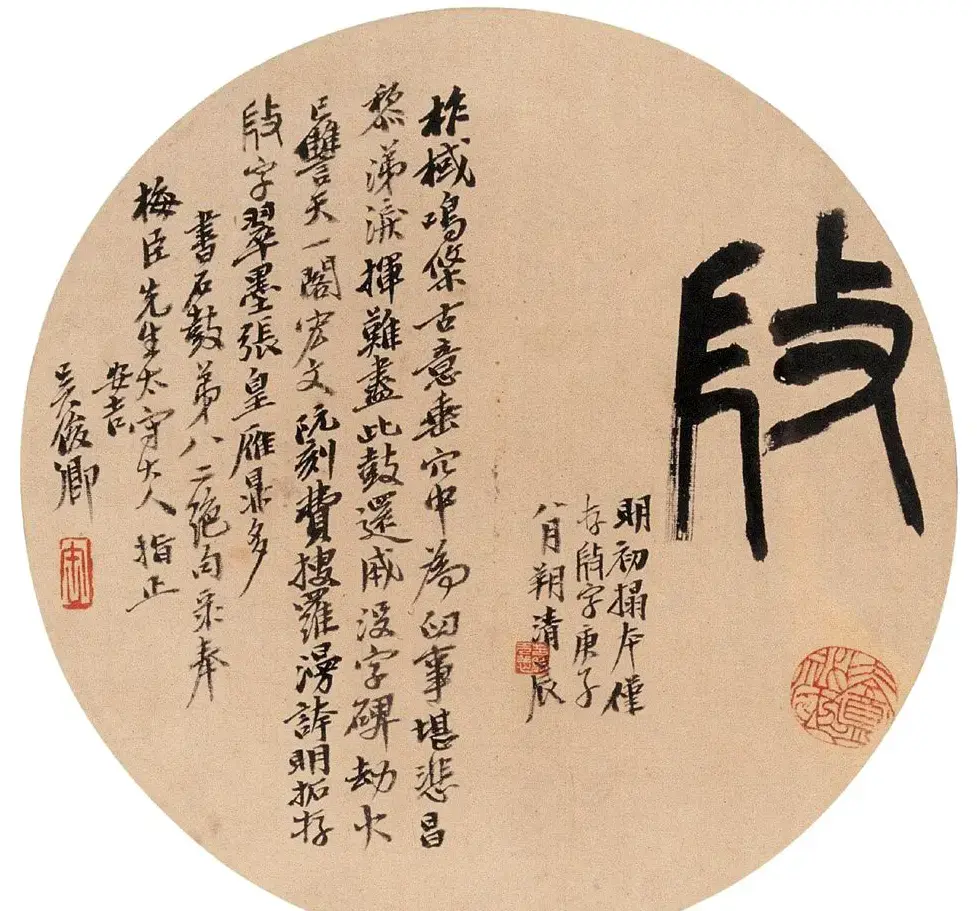 㲃
明初搨本僅
存㲃字庚子
八月朔清晨
柞棫鳴條古意垂穴中為臼事堪悲昌
黎涕淚揮難盡此鼓還成沒字碑劫火
已讐天一閣宏文阮刻費搜羅漫誇明拓存
㲃字翠墨張皇雁鼎多
書石鼓弟八二絕句录奉
梅臣先生太守大人指正
安吉
吳俊卿